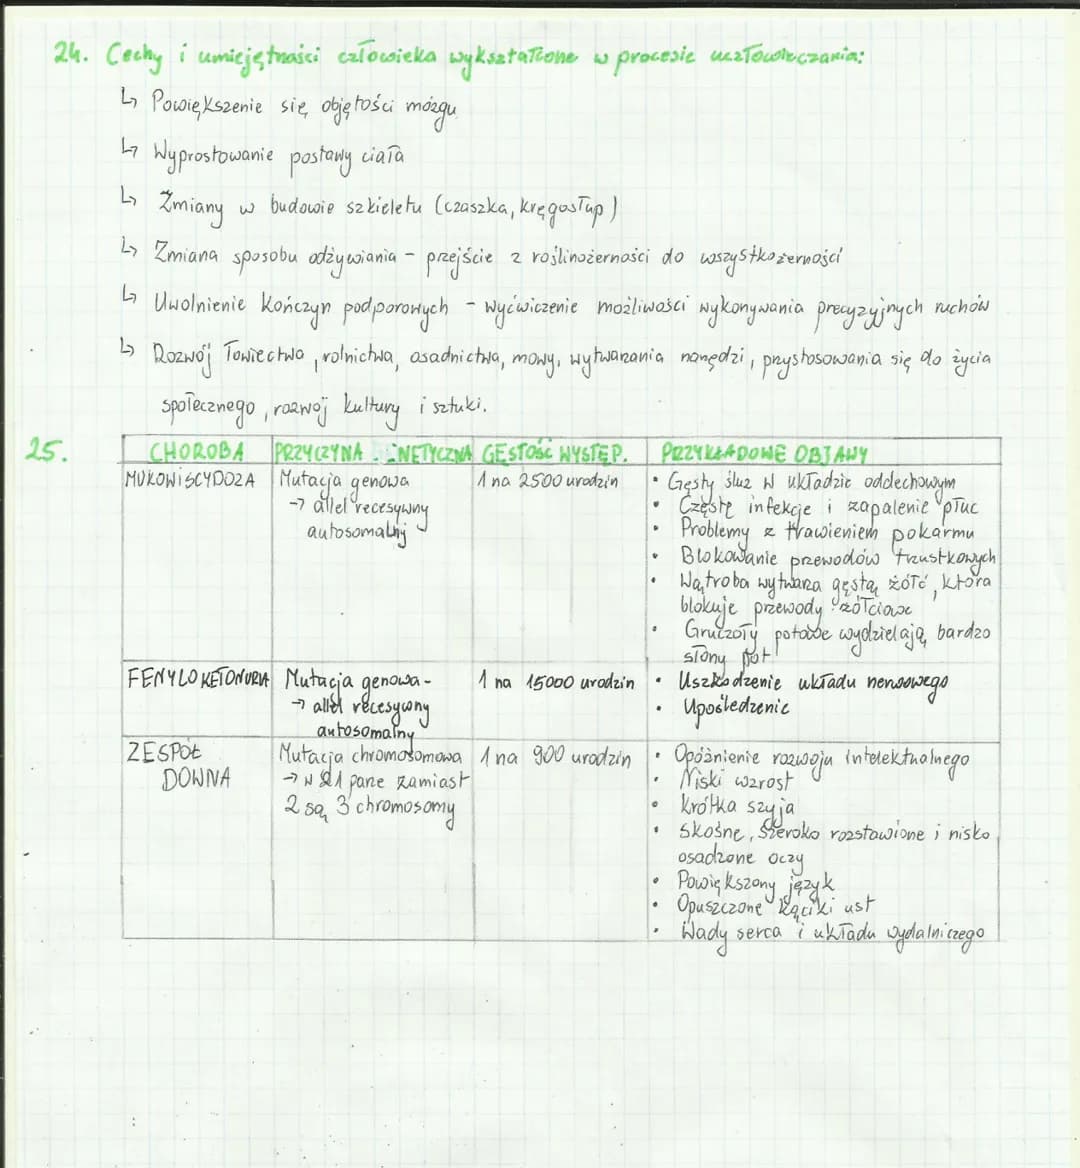 24. Cechy i umiejętności człowieka wykształcone w procesie uczłowieczania:
↳ Powiększenie się objętości mózgu
↳ Wyprostowanie postawy ciała
↳ Zmiany w budowie szkieletu (czaszka, kręgosłup)
↳ Zmiana sposobu odżywiania - przejście z roślinożerności do wszystkożerności
↳ Uwolnienie kończyn podporowych - wyćwiczenie możliwości wykonywania precyzyjnych ruchów
↳ Rozwój łowiectwa, rolnictwa, osadnictwa, mowy, wytwarzania narzędzi, przystosowania się do życia
społecznego, rozwój kultury i sztuki.
25.
CHOROBA PRZYCZYNA GENETYCZNA GĘSTOŚĆ WYSTĘP. PRZYKŁADOWE OBJAWY
MUKOWISCYDOZA Mutacja genowa 1 na 2500 urodzin • Gęsty śluz w układzie oddechowym
→ allel recesywny • Częste infekcje i zapalenie płuc
autosomalny • Problemy z trawieniem pokarmu
• Blokowanie przewodów trzustkowych
• Wątroba wytwarza gęstą żółć, która
blokuje przewody żółciowe
• Gruczoły potowe wydzielają bardzo
słony pot
FENYLOKETONURIA Mutacja genowa- 1 na 15000 urodzin • Uszkodzenie układu nerwowego
→ allel recesywny • Upośledzenie
autosomalny
ZESPÓŁ Mutacja chromosomowa 1 na 900 urodzin • Opóźnienie rozwoju intelektualnego
DOWNA → w 21 parze zamiast • Niski wzrost
2 są 3 chromosomy • krótka szyja
• Skośne, szeroko rozstawione i nisko
osadzone oczy
• Powiększony język
• Opuszczone kąciki ust
• Wady serca i układu wydalniczego